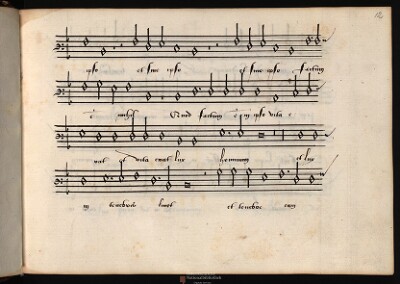 ipso et sine ipso et sine ipso factum
e nichil Quod factum e in ipso vita e
rat et vita erat lux hominum et lux
in tenebris lucet et tenebre eam